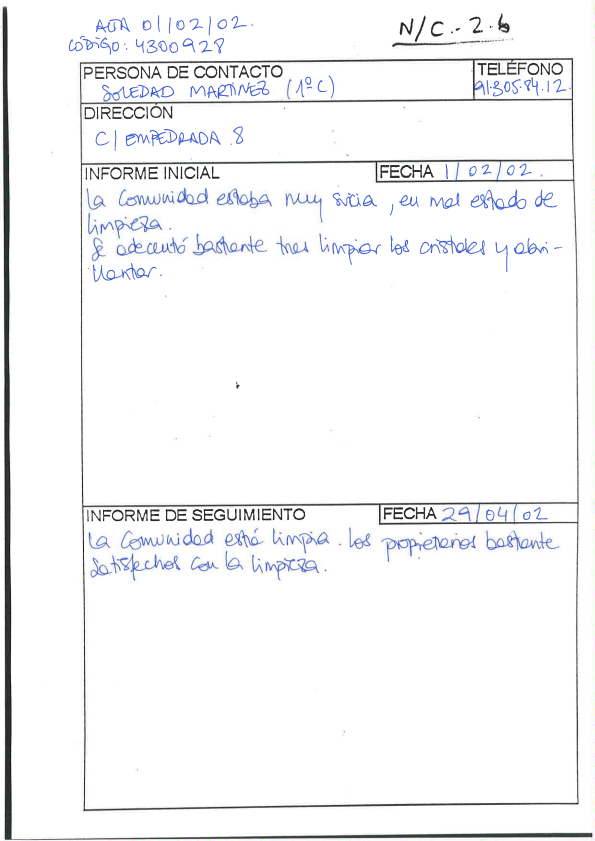 ALTA 01/02/02.
CÓDIGO: 4300928
N/C.- 2.6
PERSONA DE CONTACTO
SOLEDAD MARTINEZ (1º C)
TELÉFONO
91.305.84.12.
DIRECCIÓN
C/ EMPEDRADA 8
INFORME INICIAL
FECHA 1/02/02.
La Comunidad estaba muy sucia, en mal estado de
limpieza.
Se adecentó bastante tras limpiar los cristales y abri-
llantar.
INFORME DE SEGUIMIENTO
FECHA 29/04/02
La Comunidad está limpia. Los propietarios bastante
satisfechos con la limpieza.